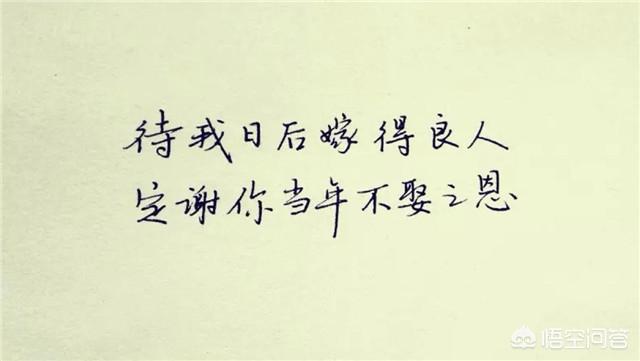 待我日后嫁得良人
定谢你当年不娶之恩
悟空问答